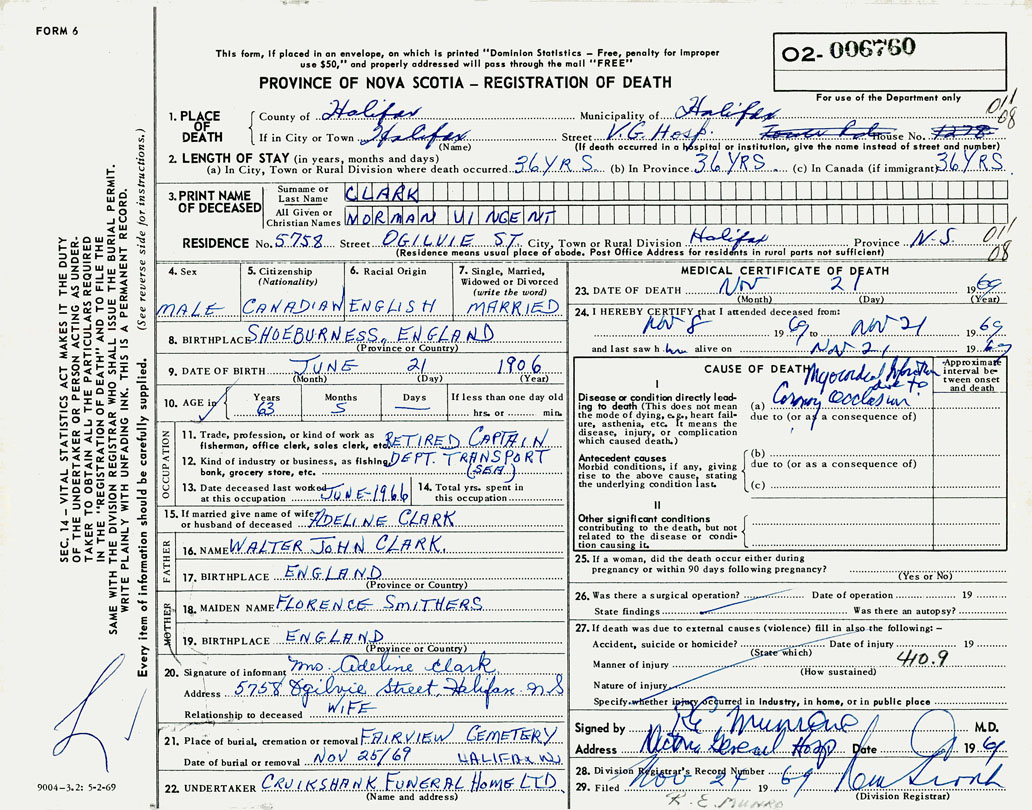 FORM 6
This form, if placed in an envelope, on which is printed "Dominion Statistics – Free, penalty for improper
use $50," and properly addressed will pass through the mail "FREE"
PROVINCE OF NOVA SCOTIA – REGISTRATION OF DEATH
02- 006760
For use of the Department only
011
08
1. PLACE OF DEATH
County of Halifax Municipality of Halifax
If in City or Town Halifax Street V.G. Hosp. House No. 1278
(Name) (If death occurred in a hospital or institution, give the name instead of street and number)
2. LENGTH OF STAY (in years, months and days)
(a) In City, Town or Rural Division where death occurred 36 YRS. (b) In Province 36 YRS (c) In Canada (if immigrant) 36 YRS
3. PRINT NAME OF DECEASED
Surname or Last Name CLARK
All Given or Christian Names NORMAN VINCENT
RESIDENCE No. 5758 Street OGILVIE ST. City, Town or Rural Division Halifax Province N.S. 011
08
(Residence means usual place of abode. Post Office Address for residents in rural parts not sufficient)
4. Sex MALE
5. Citizenship (Nationality) CANADIAN
6. Racial Origin ENGLISH
7. Single, Married, Widowed or Divorced (write the word) MARRIED
8. BIRTHPLACE SHOEBURNESS, ENGLAND
(Province or Country)
9. DATE OF BIRTH JUNE 21 1906
(Month) (Day) (Year)
10. AGE in Years 63 Months 5 Days — If less than one day old hrs. or min.
OCCUPATION
11. Trade, profession, or kind of work as fisherman, office clerk, sales clerk, etc. RETIRED CAPTAIN
12. Kind of industry or business, as fishing, bank, grocery store, etc. DEPT. TRANSPORT (SEA)
13. Date deceased last worked at this occupation JUNE-1966
14. Total yrs. spent in this occupation
15. If married give name of wife or husband of deceased ADELINE CLARK
FATHER
16. NAME WALTER JOHN CLARK.
17. BIRTHPLACE ENGLAND
(Province or Country)
MOTHER
18. MAIDEN NAME FLORENCE SMITHERS
19. BIRTHPLACE ENGLAND
(Province or Country)
20. Signature of informant Mrs. Adeline Clark
Address 5758 Ogilvie Street, Halifax N S
Relationship to deceased WIFE
21. Place of burial, cremation or removal FAIRVIEW CEMETERY
Date of burial or removal NOV 25/69 HALIFAX N.S.
22. UNDERTAKER CRUIKSHANK FUNERAL HOME LTD.
(Name and address)
MEDICAL CERTIFICATE OF DEATH
23. DATE OF DEATH Nov 21 1969
(Month) (Day) (Year)
24. I HEREBY CERTIFY that I attended deceased from:
Nov 8 1969 to Nov 21 1969
and last saw him alive on Nov 21 1969
CAUSE OF DEATH
Approximate interval between onset and death
I
Disease or condition directly leading to death (This does not mean the mode of dying, e.g., heart failure, asthenia, etc. It means the disease, injury, or complication which caused death.)
(a) Myocardial Infarction due to Coronary Occlusion
due to (or as a consequence of)
Antecedent causes
Morbid conditions, if any, giving rise to the above cause, stating the underlying condition last.
(b)
due to (or as a consequence of)
(c)
II
Other significant conditions
contributing to the death, but not related to the disease or condition causing it.
25. If a woman, did the death occur either during pregnancy or within 90 days following pregnancy?
(Yes or No)
26. Was there a surgical operation? Date of operation 19
State findings Was there an autopsy?
27. If death was due to external causes (violence) fill in also the following: –
Accident, suicide or homicide? Date of injury 19
(State which)
Manner of injury 410.9
(How sustained)
Nature of injury
Specify whether injury occurred in Industry, in home, or in public place
Signed by R E Munro M.D.
Address Victoria General Hosp Date 1969
28. Division Registrar's Record Number
29. Filed Nov 24 1969
(Division Registrar)
R. E. MUNRO
SEC. 14 – VITAL STATISTICS ACT MAKES IT THE DUTY
OF THE UNDERTAKER OR PERSON ACTING AS UNDERTAKER
TO OBTAIN ALL THE PARTICULARS REQUIRED
IN THE "REGISTRATION OF DEATH" AND TO FILE THE
SAME WITH THE DIVISION REGISTRAR WHO SHALL ISSUE THE BURIAL PERMIT.
WRITE PLAINLY WITH UNFADING INK. THIS IS A PERMANENT RECORD.
Every item of information should be carefully supplied. (See reverse side for instructions.)
9004-3.2: 5-2-69